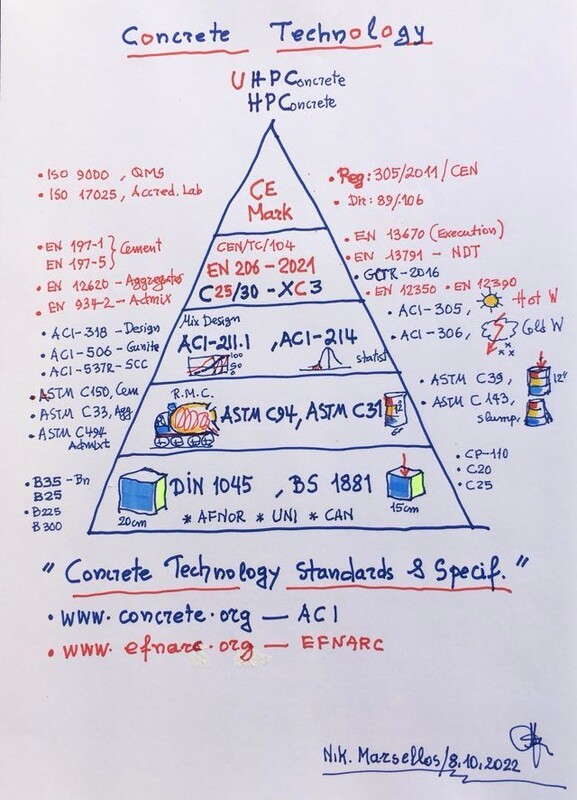 Concrete Technology
UHPConcrete
HPConcrete
• ISO 9000, QMS
• ISO 17025, Accred. Lab
CE
Mark
• Reg: 305/2011/CEN
• Dir: 89/106
• EN 197-1
EN 197-5 } Cement
• EN 12620 - Aggregates
• EN 934-2 - Admix
CEN/TC/104
EN 206 - 2021
C25/30 - XC3
• EN 13670 (Execution)
• EN 13791 - NDT
• GCTR-2016
• EN 12350 • EN 12390
• ACI-318 - Design
• ACI-506 - Gunite
• ACI-537R-SCC
Mix Design
ACI-211.1, ACI-214
100
50
0
statist
• ACI-305, Hot W
• ACI-306, Cold W
• ASTM C150, Cem
• ASTM C33, Agg
• ASTM C494
Admixt
R.M.C.
ASTM C94, ASTM C31
12"
6"
• ASTM C39, 12"
• ASTM C143,
slump.
• B35 - Bn
B25
• B225
B300
DIN 1045, BS 1881
20cm
15cm
* AFNOR * UNI * CAN
• CP-110
• C20
• C25
"Concrete Technology Standards & Specif."
• www.concrete.org — ACI
• www.efnarc.org — EFNARC
Nik. Marsellos/8.10.2022